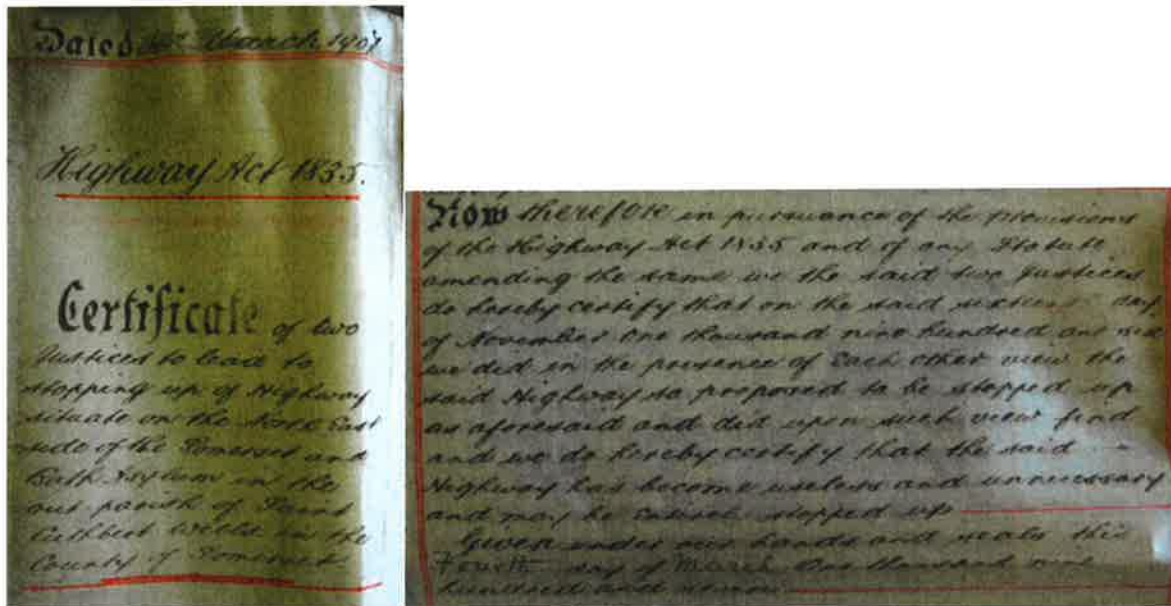 Dated March 1907
Highway Act 1835.
Certificate of two
Justices to lead to
stopping up of Highway
situate on the North East
side of the Somerset and
Bath Asylum in the
out parish of Saint
Cuthbert Wells in the
County of Somerset
Now therefore in pursuance of the provisions
of the Highway Act 1835 and of any Statute
amending the same we the said two Justices
do hereby certify that on the said day
of November One thousand nine hundred and
we did in the presence of Each other view the
said Highway so proposed to be stopped up
as aforesaid and did upon such view find
and we do hereby certify that the said
Highway has become useless and unnecessary
and may be Entirely stopped up
Given under our hands and seals this
Fourth day of March One thousand nine
hundred and seven